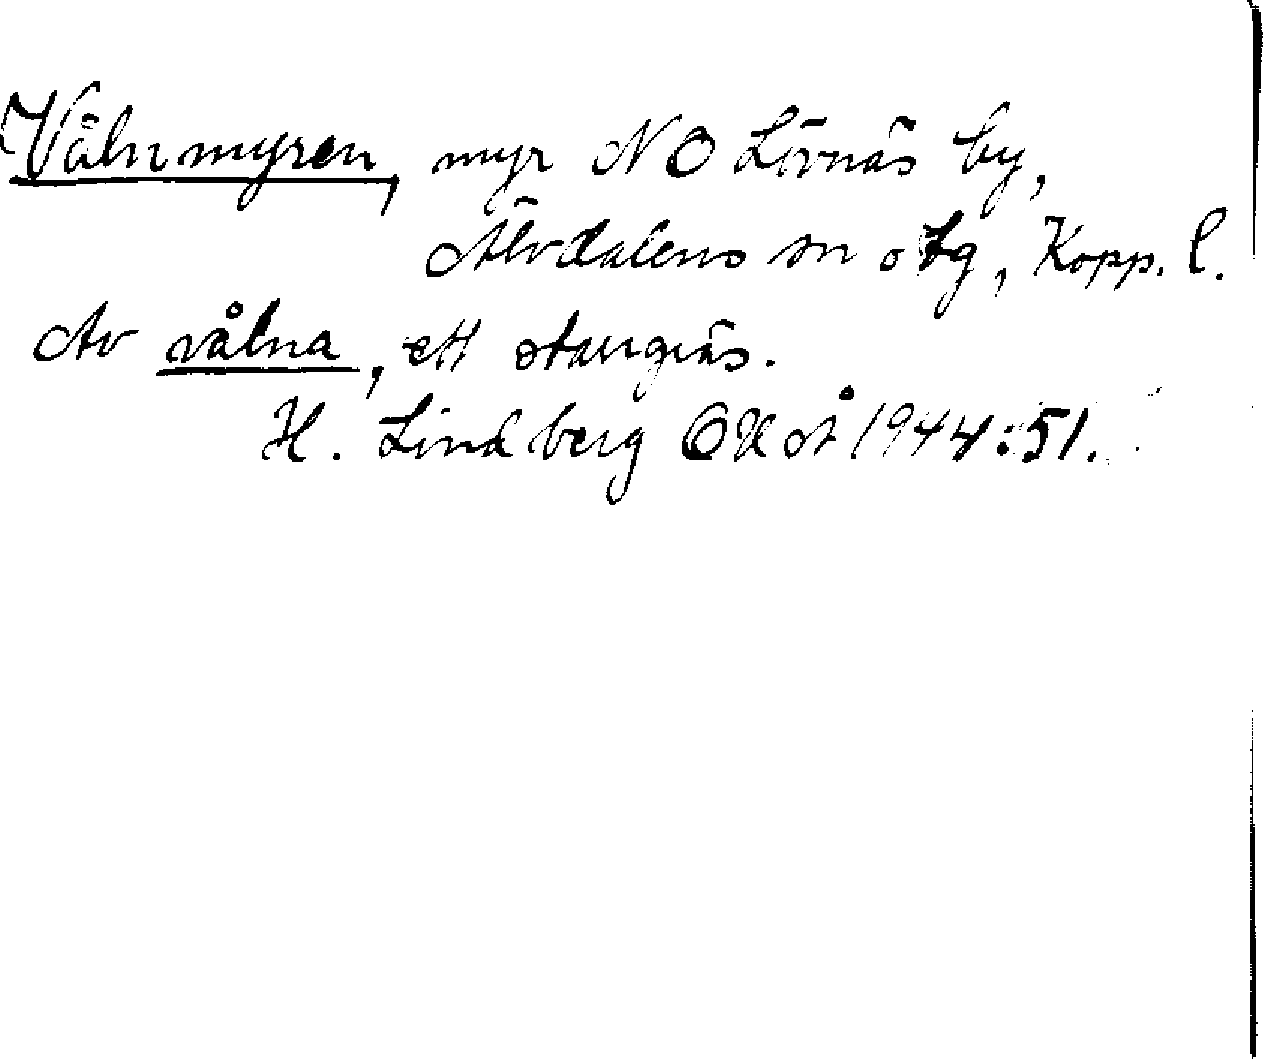 Vålnmyren, myr NO Lövnäs by,
Älvdalens sn o tg, Kopp. l.
Av vålna, ett starrgräs.
H. Lindberg OUoå 1944:51.